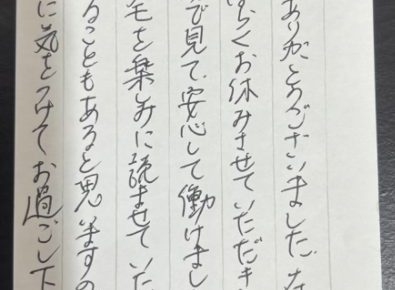 ありがとうございました。な
らくお休みさせていただき
で見て、安心して働けまし
モを楽しみに読ませていた
ることもあると思いますの
に気をつけてお過ごし下